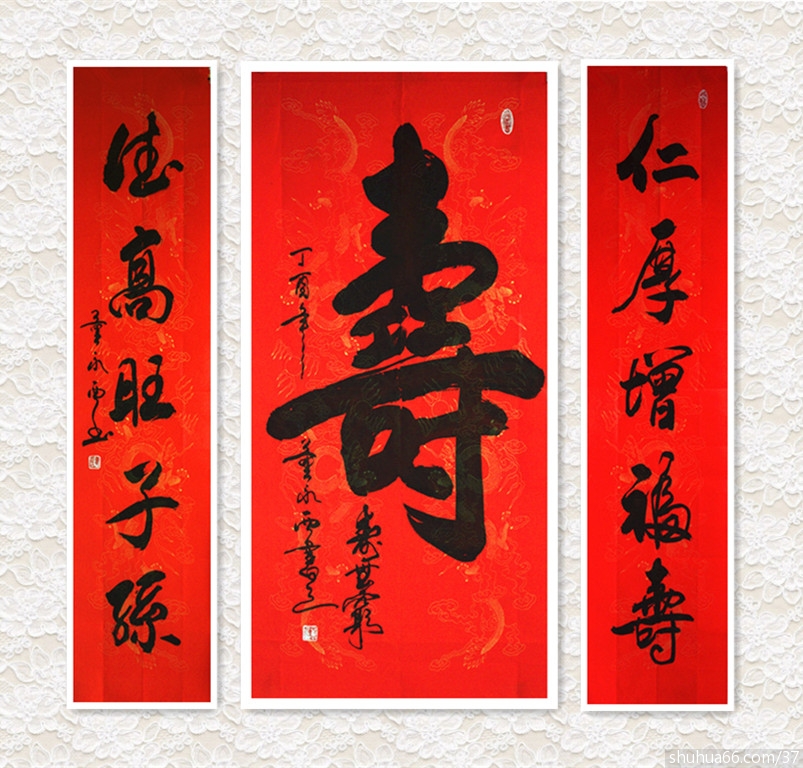 仁厚增福壽
壽
丁酉年
董永西書之
德高旺子孫
董永西书
shuhua66.com/37